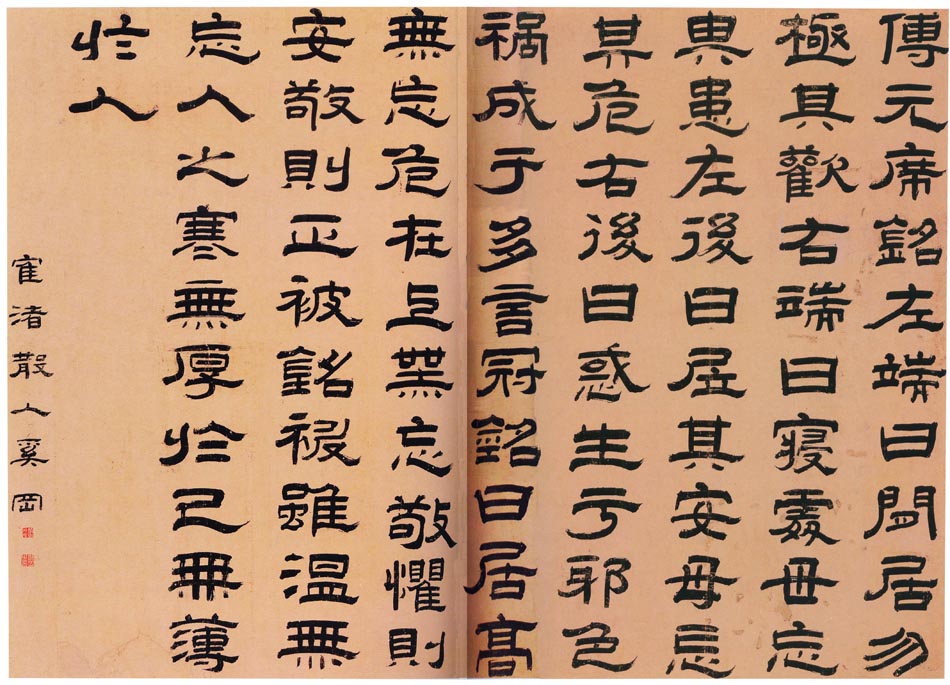 傅元席銘左端曰閒居勿
極其歡右端曰寢處毋忘
其患左後曰居其安毋忘
其危右後曰惑生于邪色
禍成于多言冠銘曰居高
無忘危在上無忘敬懼則
安敬則正被銘被雖溫無
忘人之寒無厚於己無薄
於人
寉渚散人奚岡